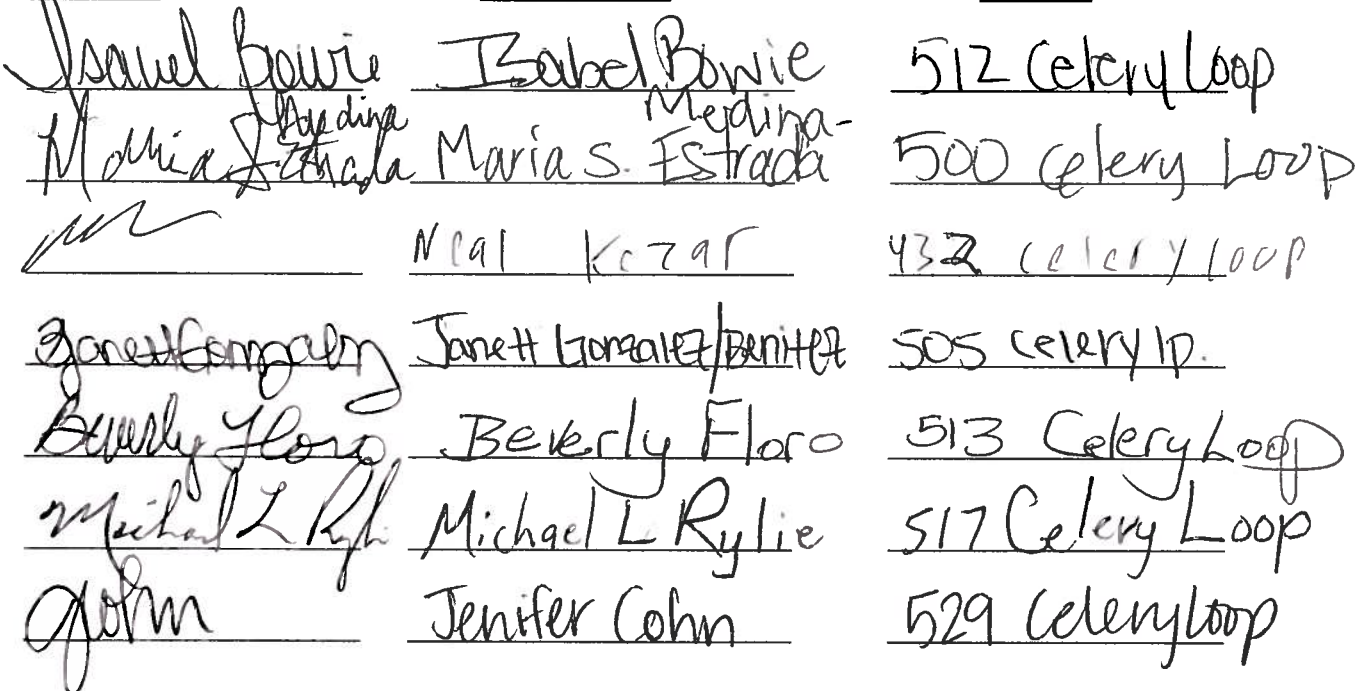 Isabel Bowie Isabel Bowie 512 Celery Loop
Medina Medina-
Maria S Estrada Maria S. Estrada 500 Celery Loop
Neal Kezar 432 Celery Loop
Janett Gonzalez Janett Gonzalez/Benitez 505 celery lp.
Beverly Floro Beverly Floro 513 Celery Loop
Michael L Rylie Michael L Rylie 517 Celery Loop
JCohn Jenifer Cohn 529 Celery Loop